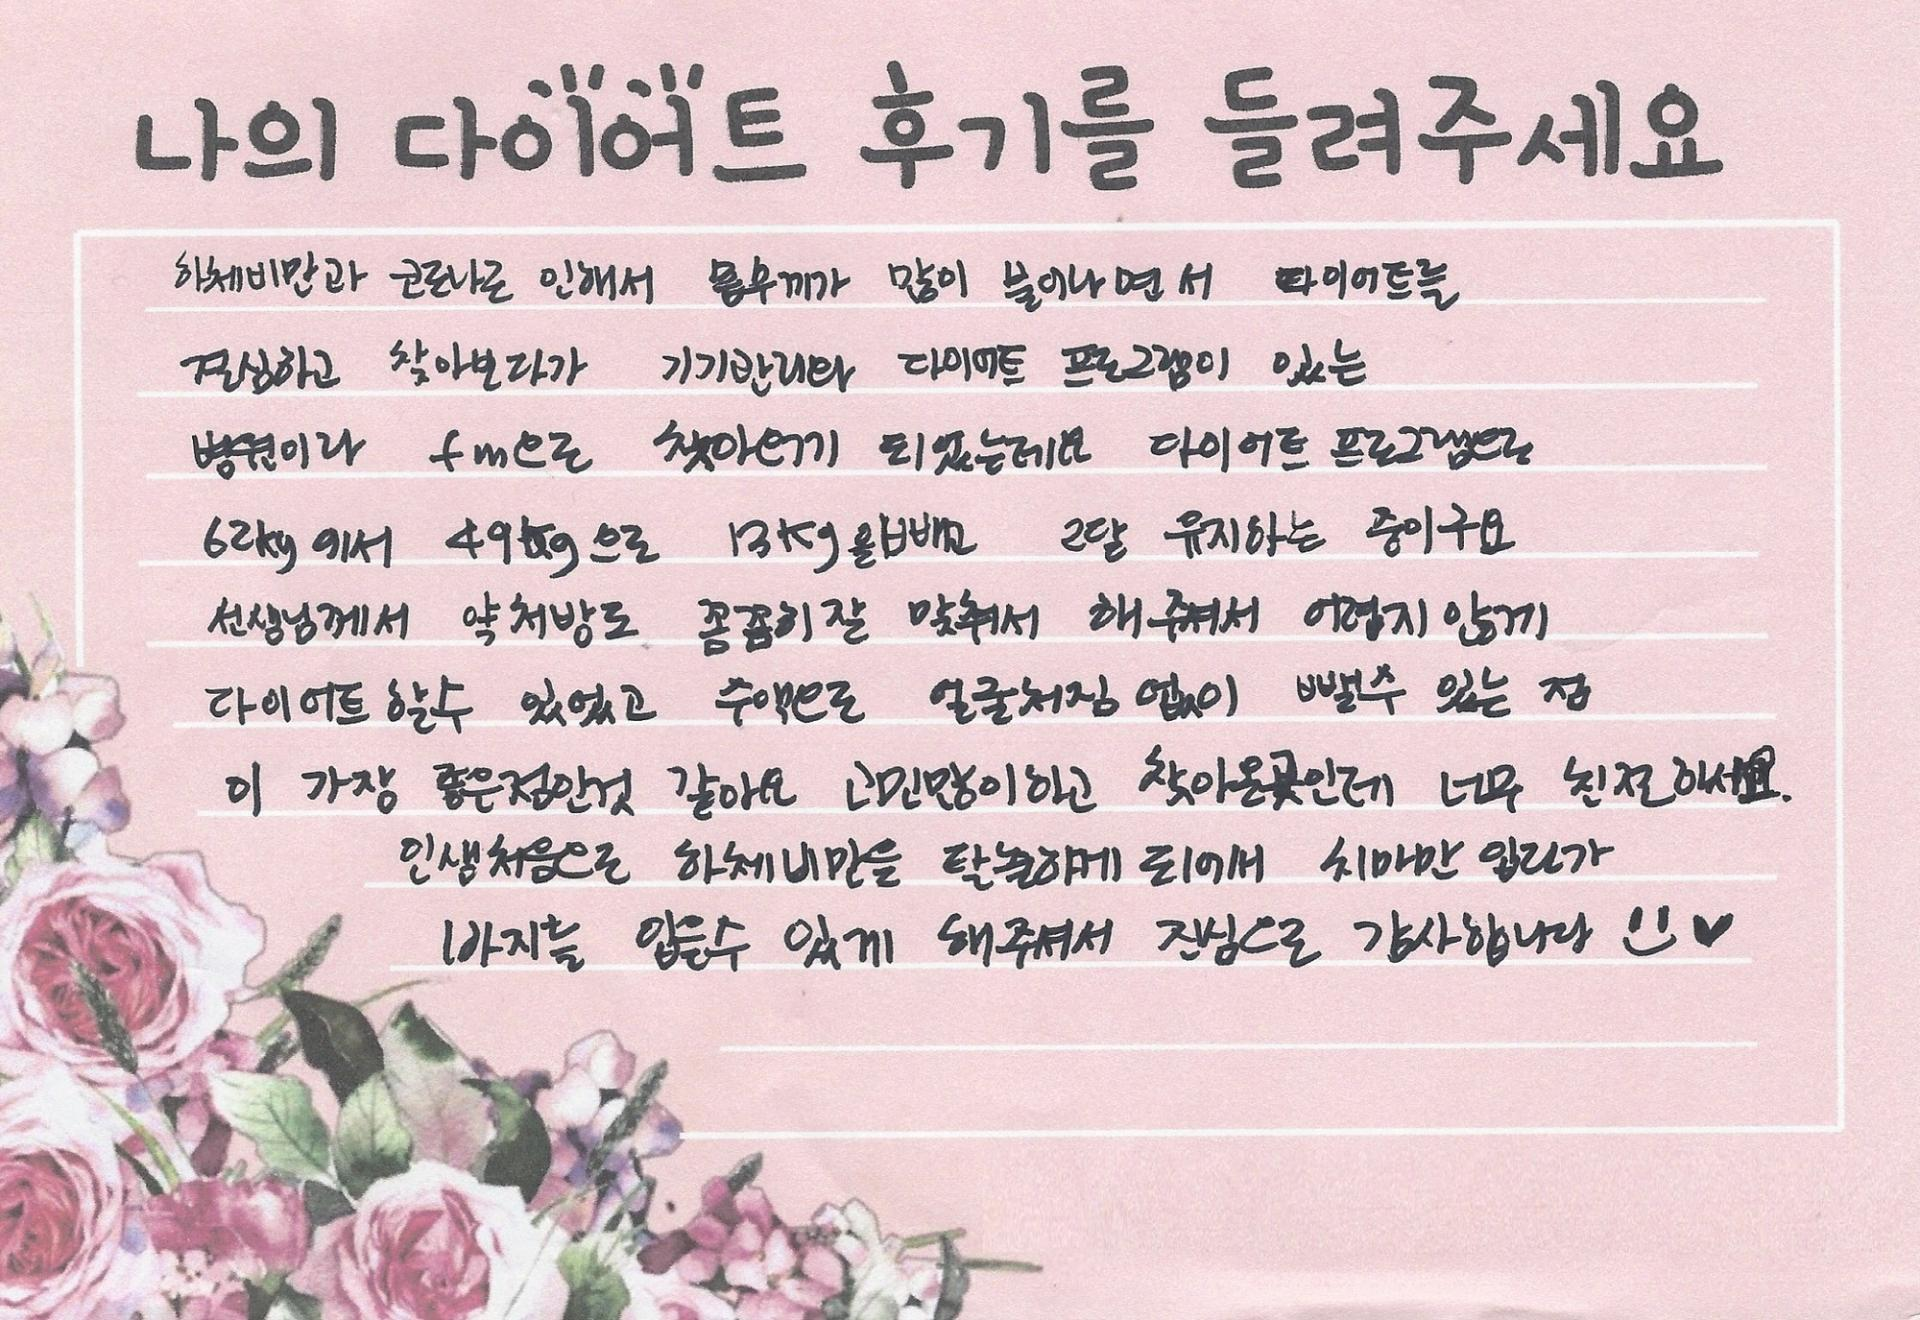 나의 다이어트 후기를 들려주세요
하체비만과 코로나로 인해서 몸무게가 많이 불어나면서 다이어트를
결심하고 찾아보다가 기기관리와 다이어트 프로그램이 있는
병원이라 fm으로 찾아오기 되었는데요 다이어트 프로그램으로
62kg에서 49kg으로 13kg을 빼고 2달 유지하는 중이구요
선생님께서 약처방도 꼼꼼히 잘 맞춰서 해주셔서 어렵지 않게
다이어트 할수 있었고 수액으로 얼굴처짐 없이 뺄수 있는 점
이 가장 좋은점인것 같아요 고민많이하고 찾아온곳인데 너무 친절하세요.
인생처음으로 하체비만을 탈출하게 되어서 치마만 입다가
바지를 입을수 있게 해주셔서 진심으로 감사합니다